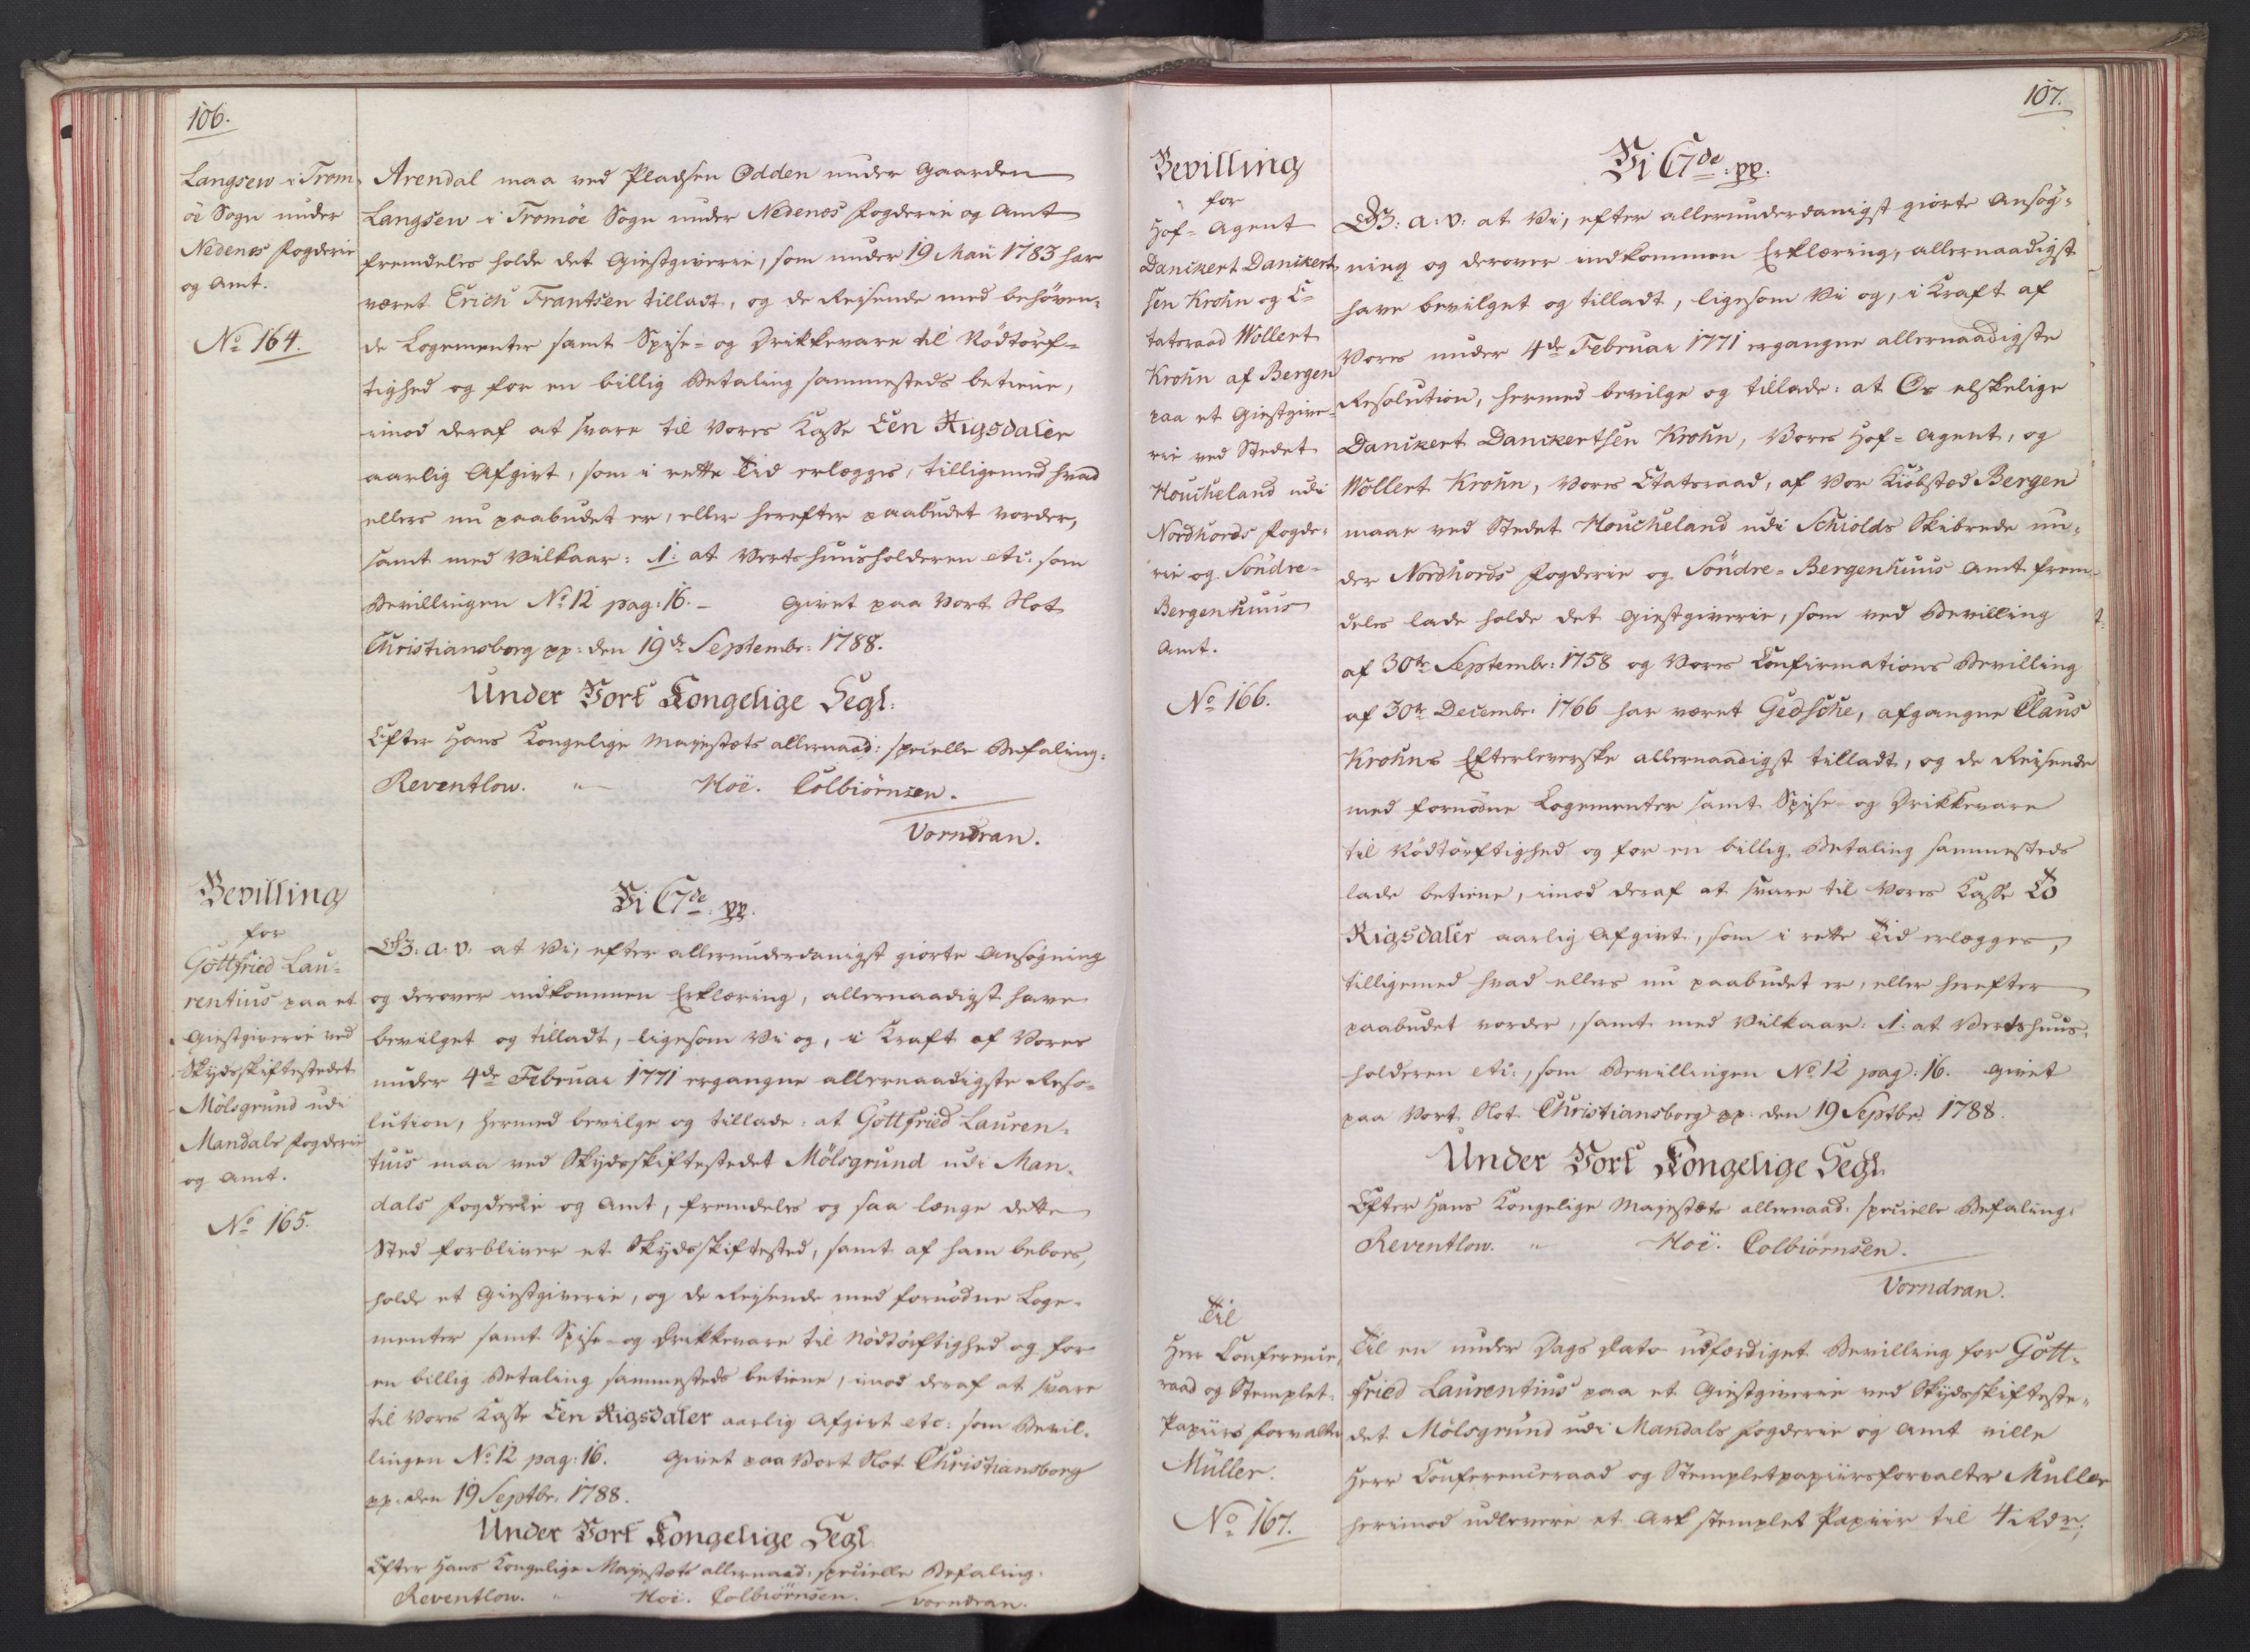 106.
Langsew i Trom-
öe Sogn under
Nedenes Fogderie
og Amt.
No 164.
Arendal maa ved Pladsen Odden under Gaarden
Langsew i Tromöe Sogn under Nedenes Fogderie og Amt
fremdeles holde det Giestgiverie, som under 19 Maii 1783 har
været Erich Frantsen tilladt, og de Reisende med behöven-
de Logementer samt Spise- og Drikkevare til Nödtörf-
tighed og for en billig Betaling sammesteds betiene,
imod deraf at svare til Vores Kasse Een Rigsdaler
aarlig Afgivt, som i rette Tid erlægges, tilligemed hvad
ellers nu paabudet er, eller herefter paabudet vorder,
samt med Vilkaar: 1: at Vertshuusholderen etc: som
Bevillingen No 12 pag: 16. - Givet paa Vort Slot
Christiansborg pp: den 19de Septembr: 1788.
Under Vort Kongelige Segl.
Efter Hans Kongelige Majestæts allernaad: specielle Befaling:
Reventlow. " Hoë. Colbiörnsen.
Vorndran.
Bevilling
for
Gottfried Lau-
rentius paa et
Giestgiverie ved
Skydsskiftestedet
Mölsgrund udi
Mandals Fogderie
og Amt.
No 165.
Vi C7de. pp.
G: a: v: at Vi, efter allerunderdanigst giorte Ansögning
og derover indkommen Erklæring, allernaadigst have
bevilget og tilladt, ligesom Vi og, i Kraft af Vores
under 4de Februar 1771 ergangne allernaadigste Reso-
lution, hermed bevilge og tillade: at Gottfried Lauren-
tius maa ved Skydsskiftestedet Mölsgrund udi Man-
dals Fogderie og Amt, fremdeles og saa længe dette
Sted forbliver et Skydsskiftested, samt af ham beboes,
holde et Giestgiverie, og de Reysende med fornödne Loge-
menter samt Spise- og Drikkevare til Nödtörftighed og for
en billig Betaling sammesteds betiene, imod deraf at svare
til Vores Kasse Een Rigsdaler aarlig Afgivt etc: som Bevil-
lingen No 12 pag: 16. Givet paa Vort Slot Christiansborg
pp: den 19 Septbr. 1788.
Under Vort Kongelige Segl.
Efter Hans Kongelige Majestæts allernaad: specielle Befaling.
Reventlow. " Hoë. Colbiörnsen. Vorndran.
107.
Bevilling
for
Hof-Agent
Danckert Danckert-
sen Krohn og E-
tatsraad Wöllert
Krohn af Bergen
paa et Giestgive-
rie ved Stedet
Houcheland udi
Nordhords Fogde-
rie og Söndre-
Bergenhuus
Amt.
No 166.
Vi C7de. pp.
G: a: v: at Vi, efter allerunderdanigst giorte Ansög-
ning og derover indkommen Erklæring, allernaadigst
have bevilget og tilladt, ligesom Vi og, i Kraft af
Vores under 4de Februar 1771 ergangne allernaadigste
Resolution, hermed bevilge og tillade: at Os elskelige
Danckert Danckertsen Krohn, Vores Hof-Agent, og
Wöllert Krohn, Vores Etatsraad, af Vor Kiöbsted Bergen
maae ved Stedet Houcheland udi Schiolds Skibrede un-
der Nordhords Fogderie og Söndre-Bergenhuus Amt frem-
deles lade holde det Giestgiverie, som ved Bevilling
af 30te Septembr: 1758 og Vores Confirmations Bevilling
af 30te Decembr: 1766 har været Gedsche, afgangne Claus
Krohns Efterleverske allernaadigst tilladt, og de Reisende
med fornödne Logementer samt Spise- og Drikkevare
til Nödtörftighed og for en billig Betaling sammesteds
lade betiene, imod deraf at svare til Vores Kasse To
Rigsdaler aarlig Afgivt, som i rette Tid erlægges,
tilligemed hvad ellers nu paabudet er, eller herefter
paabudet vorder, samt med Vilkaar: 1: at Vertshuus-
holderen etc:, som Bevillingen No 12 pag: 16. Givet
paa Vort Slot Christiansborg pp: den 19 Septbr. 1788.
Under Vort Kongelige Segl.
Efter Hans Kongelige Majestæts allernaad: specielle Befaling:
Reventlow. " Hoë. Colbiörnsen.
Vorndran.
Til
Herr Conference-
raad og Stemplet-
Papiirs Forvalter
Müller.
No 167.
Til en under Dags Dato udfærdiget Bevilling for Gott-
fried Laurentius paa et Giestgiverie ved Skydsskifteste-
det Mölsgrund udi Mandals Fogderie og Amt ville
Herr Conferenceraad og Stempletpapiirsforvalter Muller
herimod udlevere et Ark stemplet Papiir til 4 Rdr.;